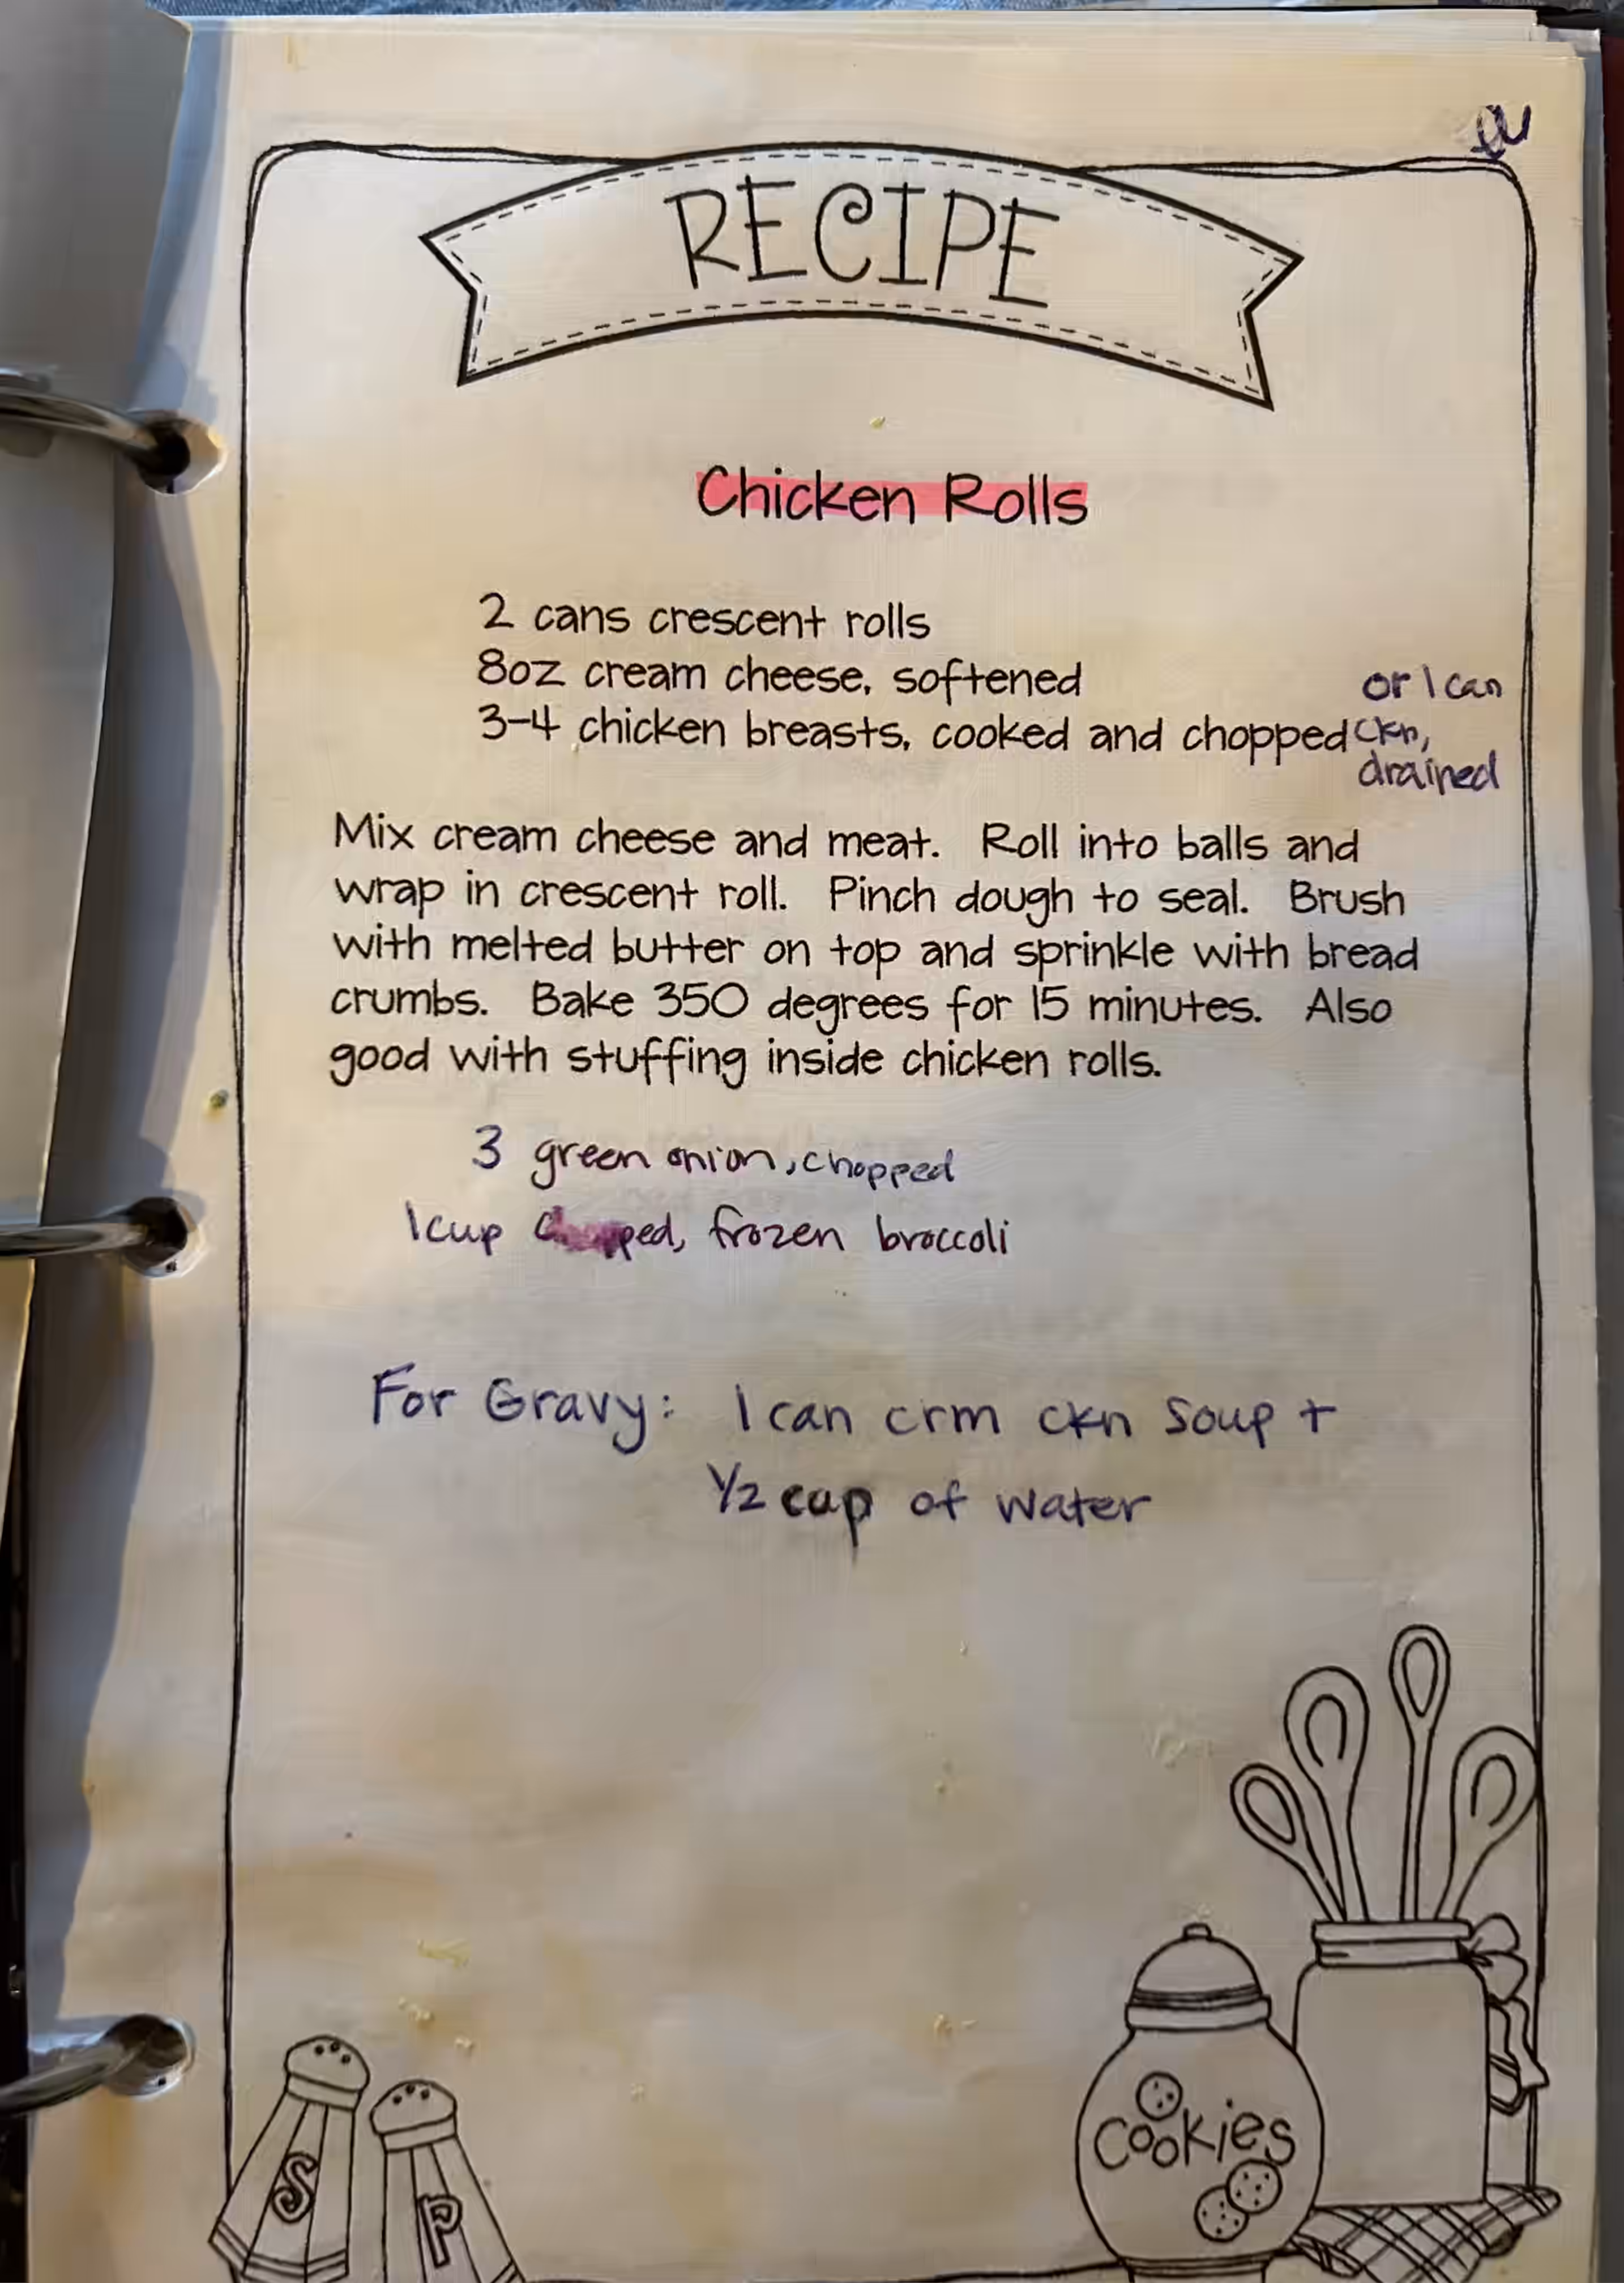 RECIPE
Chicken Rolls
2 cans crescent rolls
8oz cream cheese, softened
3-4 chicken breasts, cooked and chopped
or 1 can
ckn,
drained
Mix cream cheese and meat. Roll into balls and
wrap in crescent roll. Pinch dough to seal. Brush
with melted butter on top and sprinkle with bread
crumbs. Bake 350 degrees for 15 minutes. Also
good with stuffing inside chicken rolls.
3 green onion, chopped
1 cup chopped, frozen broccoli
For Gravy: 1 can crm ckn soup +
1/2 cup of water
cookies
S
P